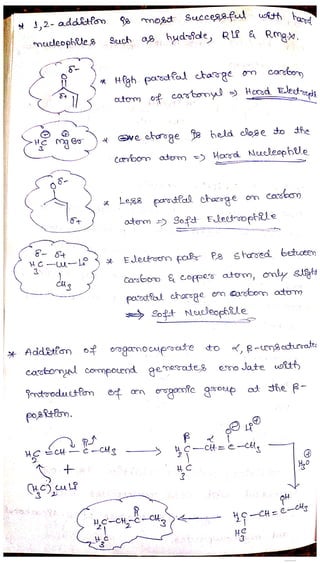 * 1,2-addition is most successful with hard
nucleophiles such as hydride, RLi & Rmgx.
O δ-
δ+
* High partial charge on carbon
atom of carbonyl => Hard Electroph
H3C⊖ ⊕MgBr
* ⊖ve charge is held close to the
carbon atom => Hard Nucleophile
O δ-
δ+
* Less partial charge on carbon
atom => Soft Electrophile
δ- δ+
H3C-Cu-Li
CH3
* Electron pair is shared between
carbon & copper atom, only slight
partial charge on carbon atom
=> Soft Nucleophile
* Addition of organocuprate to α, β-unsaturate
carbonyl compound generates enolate with
introduction of an organic group at the β-
position.
H2C=CH-C-CH3 → H2C-CH=C-CH3
β α O⊖ Li⊕
+
H3C
(H3C)2CuLi
H3O⊕
OH
H2C-CH2-C-CH3 ← H2C-CH=C-CH3
H3C
H3C